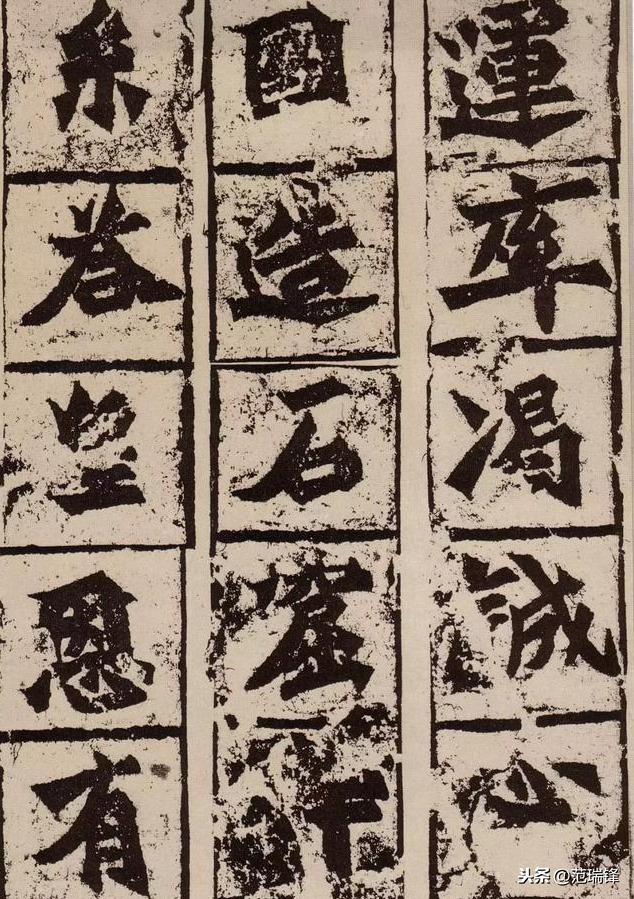 運率渴誠心
國造石窟
系荅皇恩有
头条 @范瑞锋